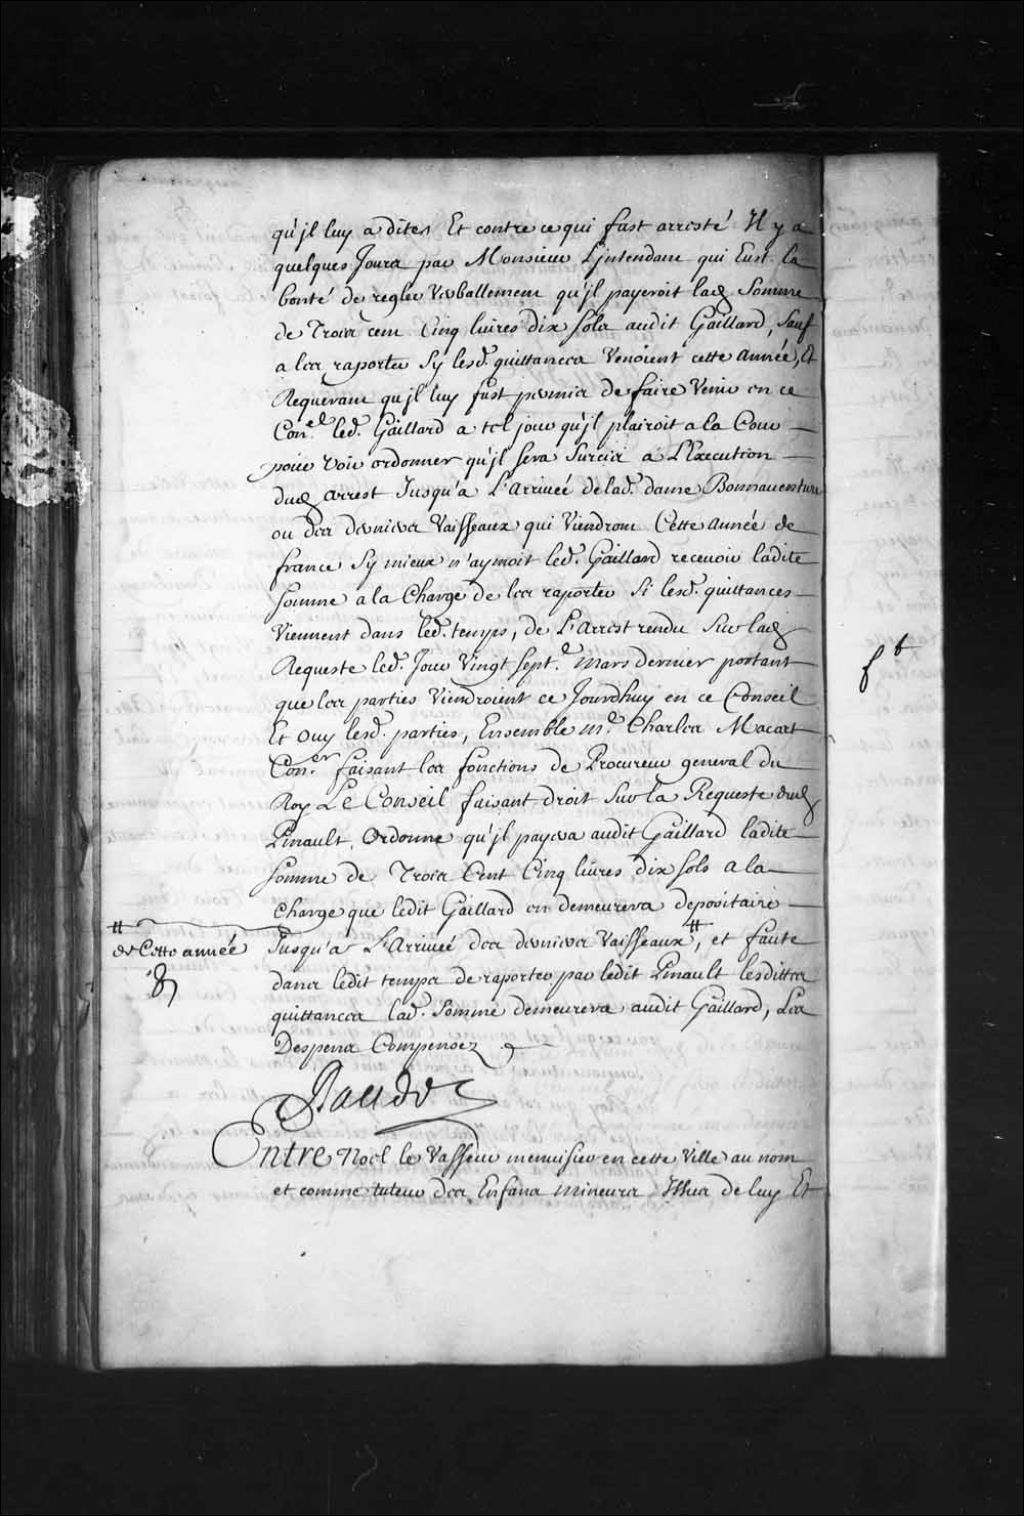 qu'jl luy a dites Et contre ce qui fust arresté Il y a
quelques Jours par Monsieur L'jntendant qui Eust la
bonté de regler Verballement qu'jl payeroit lad. Somme
de Trois cent Cinq liures dix sols audit Gaillard, sauf
a les raporter Sy lesd. quittances Venoient cette année, Et
Requerant qu'jl luy fust permis de faire Venir en ce
Con.el led. Gaillard a tel jour qu'jl plairoit a la Cour
pour voir ordonner qu'jl sera Surcis a L'Execution
dud. arrest Jusqu'a L'Arriuée de lad. dame Bonnauenture
ou des derniers Vaisseaux qui Viendront Cette année de
france Sy mieux n'aymoit led. Gaillard receuoir ladite
somme a la Charge de les raporter Si lesd. quittances
Viennent dans led. temps, de L'Arrest rendu Sur lad.
Requeste led. Jour Vingt sept.e Mars dernier portant
que les parties Viendroient ce Jourdhuy en ce Conseil
Et Ouy lesd. parties, Ensemble m.e Charles Macart
Con.er faisant les fonctions de Procureur general du
Roy Le Conseil faisant droit Sur la Requeste dud.
Pinault, Ordonne qu'jl payera audit Gaillard ladite
somme de Trois Cent Cinq liures dix sols a la
charge que ledit Gaillard en demeurera depositaire
Jusqu'a L'Arriuée des derniers Vaisseaux #, et faute
# de Cette année
dans ledit temps de raporter par ledit Pinault lesdittes
quittances lad. Somme demeurera audit Gaillard, Les
Despens Compensez
Entre Noel le Vasseur menuisier en cette Ville au nom
et comme tuteur des Enfans mineurs Issus de luy Et